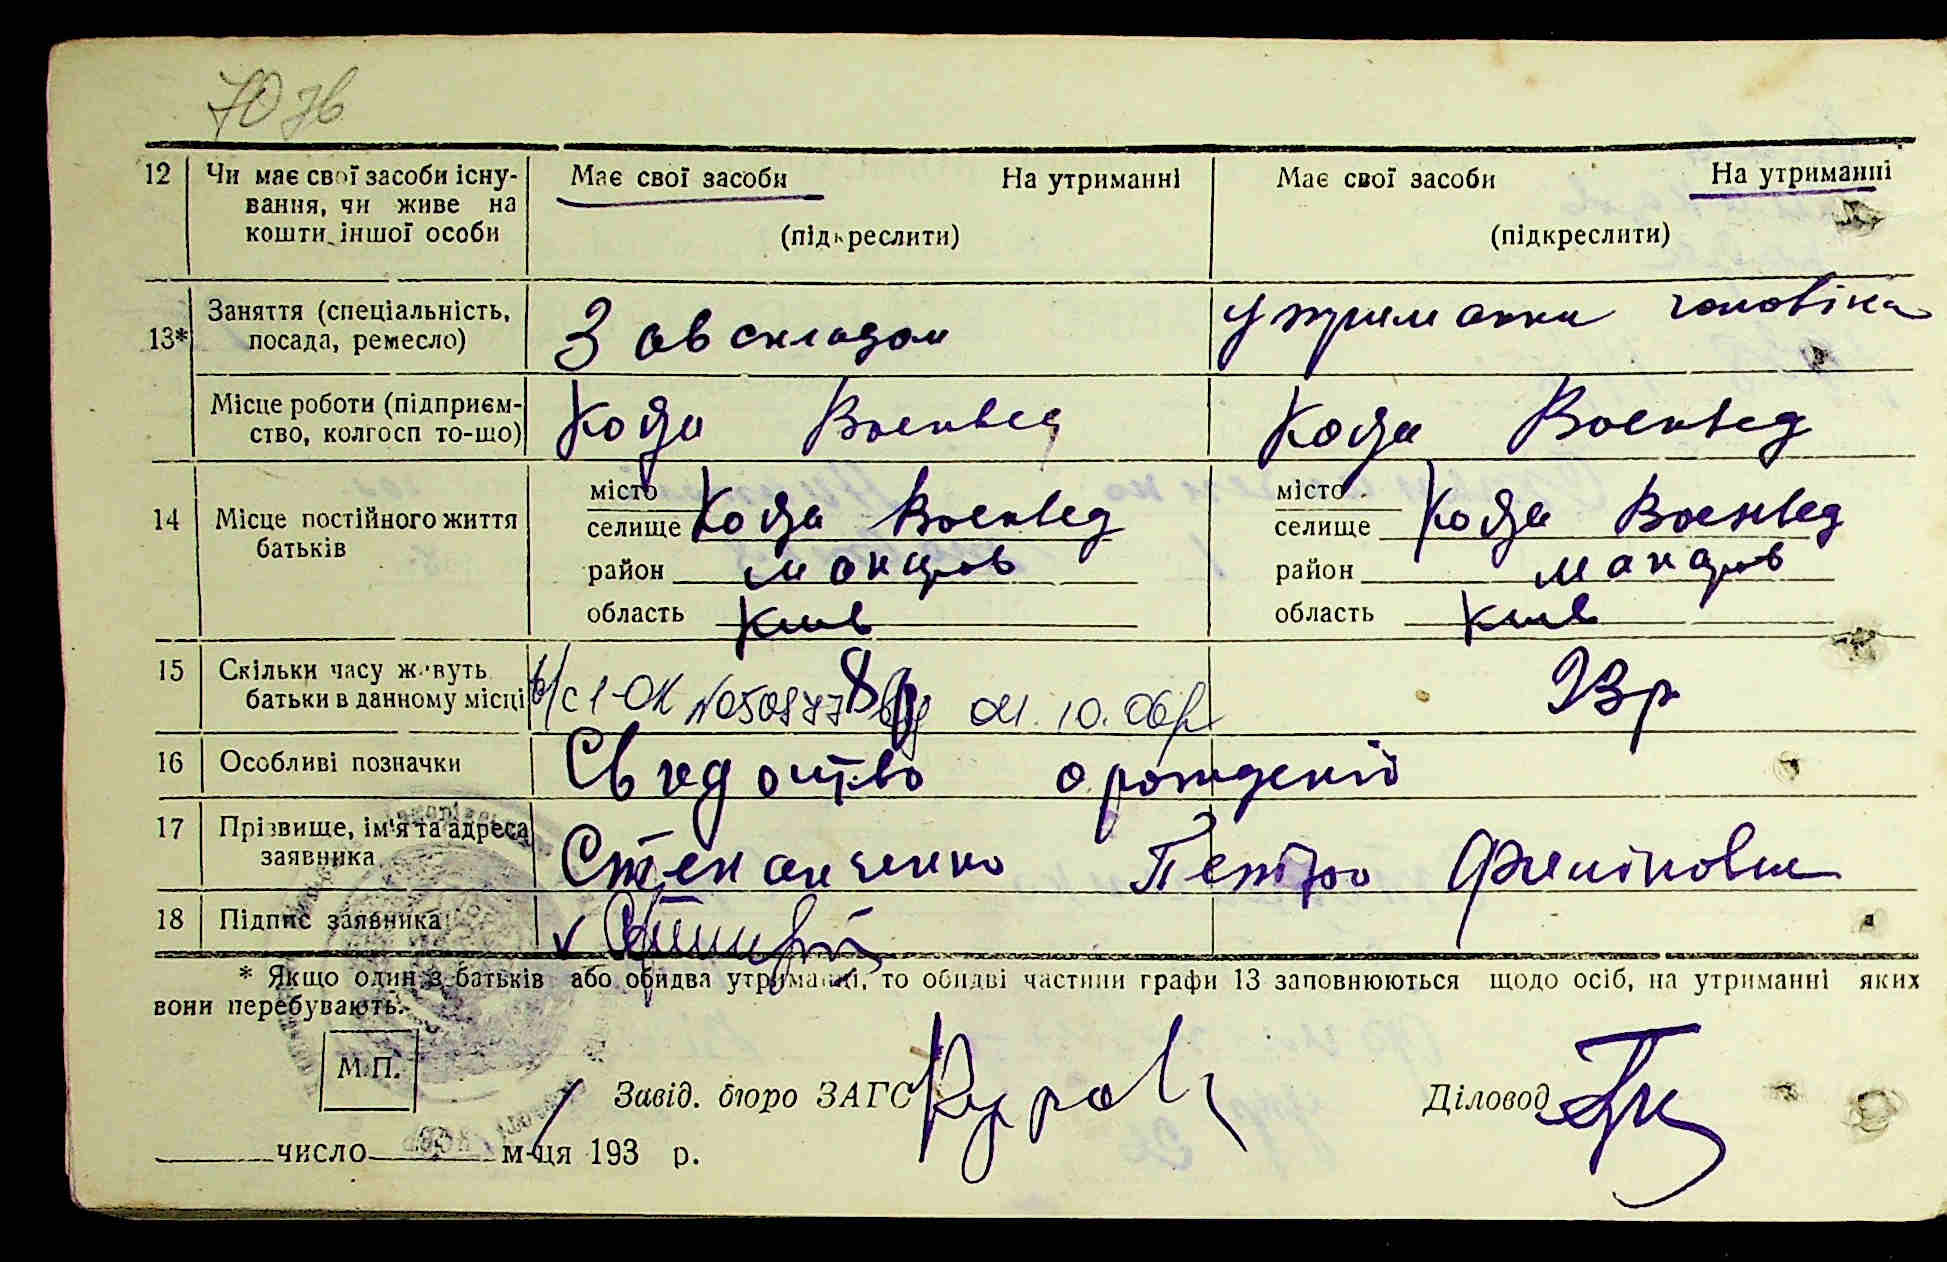 70 зв
12 Чи має свої засоби існу- Має свої засоби На утриманні Має свої засоби На утриманні
вання, чи живе на
кошти іншої особи (підкреслити) (підкреслити)
13* Заняття (спеціальність, посада, ремесло) Завскладом утриманни чоловіка
Місце роботи (підприєм-
ство, колгосп то-що)
14 Місце постійного життя
батьків
місто місто
селище селище
район район
область Київ область Київ
15 Скільки часу живуть
батьки в данному місці 8р 23р
в/с 1-ОК №050877 від 04.10.06р
16 Особливі позначки Свідоцтво о рожденій
17 Прізвище, ім'я та адреса
заявника Степанченко Петро Филіпович
18 Підпис заявника
* Якщо один з батьків або обидва утриманці, то обидві частини графи 13 заповнюються щодо осіб, на утриманні яких
вони перебувають.
М.П.
Завід. бюро ЗАГС Діловод
число м-ця 193 р.